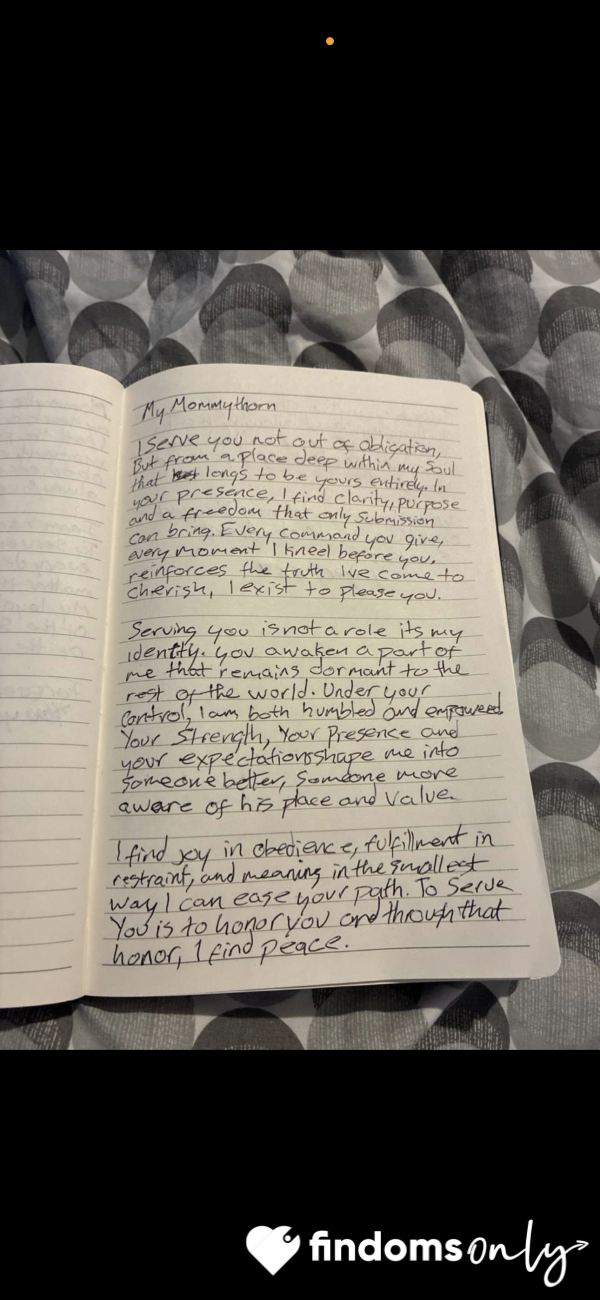 My Mommythorn
I serve you not out of obligation,
But from a place deep within my Soul
that longs to be yours entirely. In
your presence, I find clarity, purpose
and a freedom that only Submission
can bring. Every command you give,
every moment I kneel before you,
reinforces the truth Ive come to
cherish, I exist to please you.
Serving you is not a role its my
identity. You awaken a part of
me that remains dormant to the
rest of the world. Under your
Control, I am both humbled and empowered.
Your Strength, Your Presence and
your expectations shape me into
someone better, Someone more
aware of his place and value.
I find joy in obedience, fulfillment in
restraint, and meaning in the smallest
way I can ease your path. To Serve
You is to honor you and through that
honor, I find peace.
findomsonly